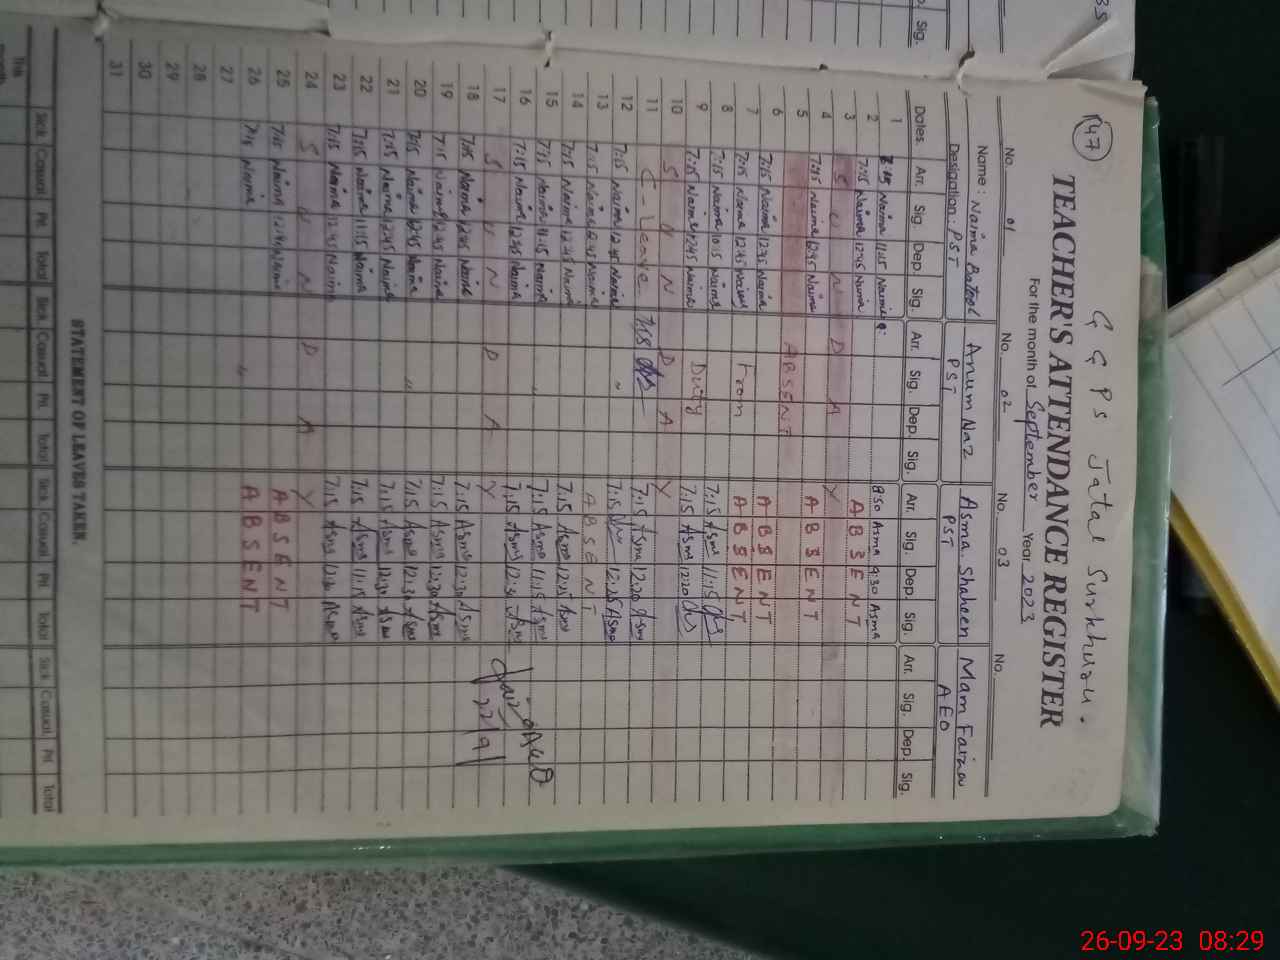 35
Sig.
147
G G P S Jatal Surkhuru.
TEACHER'S ATTENDANCE REGISTER
For the month of September Year 2023
No. 01 No. 02 No. 03 No.
Name: Naima Batool Anum Naz Asma Shaheen Mam Faiza
Designation: PST PST PST AEO
Dates. Arr. Sig. Dep. Sig. Arr. Sig. Dep. Sig. Arr. Sig. Dep. Sig. Arr. Sig. Dep. Sig.
1 7:15 Naima 11:15 Naima 8:50 Asma 9:30 Asma
2 7:15 Naima 12:45 Naima ABSENT
3 S U N D A Y
4 7:15 Naima 12:45 Naima ABSENT
5 ABSENT
6 7:15 Naima 12:45 Naima ABSENT
7 7:15 Naima 12:45 Naima From ABSENT
8 7:15 Naima 10:15 Naima 7:15 Asma 11:15
9 7:15 Naima 12:45 Naima Duty 7:15 Asma 12:20
10 S U N D A Y
11 C-Leave 7:15 7:15 Asma 12:20 Asma
12 7:15 Naima 12:45 Naima " 7:15 12:25 Asma
13 7:15 Naima 12:45 Naima ABSENT
14 7:15 Naima 12:45 Naima 7:15 Asma 12:25 Asma
15 7:15 Naima 11:15 Naima " 7:15 Asma 11:15 Asma
16 7:15 Naima 12:45 Naima 7:15 Asma 12:30 Asma
17 S U N D A Y
18 7:15 Naima 12:45 Naima 7:15 Asma 12:30 Asma 22/9
19 7:15 Naima 12:45 Naima 7:15 Asma 12:30 Asma
20 7:15 Naima 12:45 Naima " 7:15 Asma 12:30 Asma
21 7:15 Naima 12:45 Naima 7:15 Asma 12:30 Asma
22 7:15 Naima 11:15 Naima 7:15 Asma 11:15 Asma
23 7:15 Naima 12:45 Naima 7:15 Asma 12:30 Asma
24 S U N D A Y
25 7:15 Naima 12:45 Naima ABSENT
26 7:15 Naima " ABSENT
27
28
28
29
30
31
STATEMENT OF LEAVES TAKEN.
Sick Casual Pri. Total Sick Casual Pri. Total Sick Casual Pri. Total Sick Casual Pri. Total
This month
26-09-23 08:29